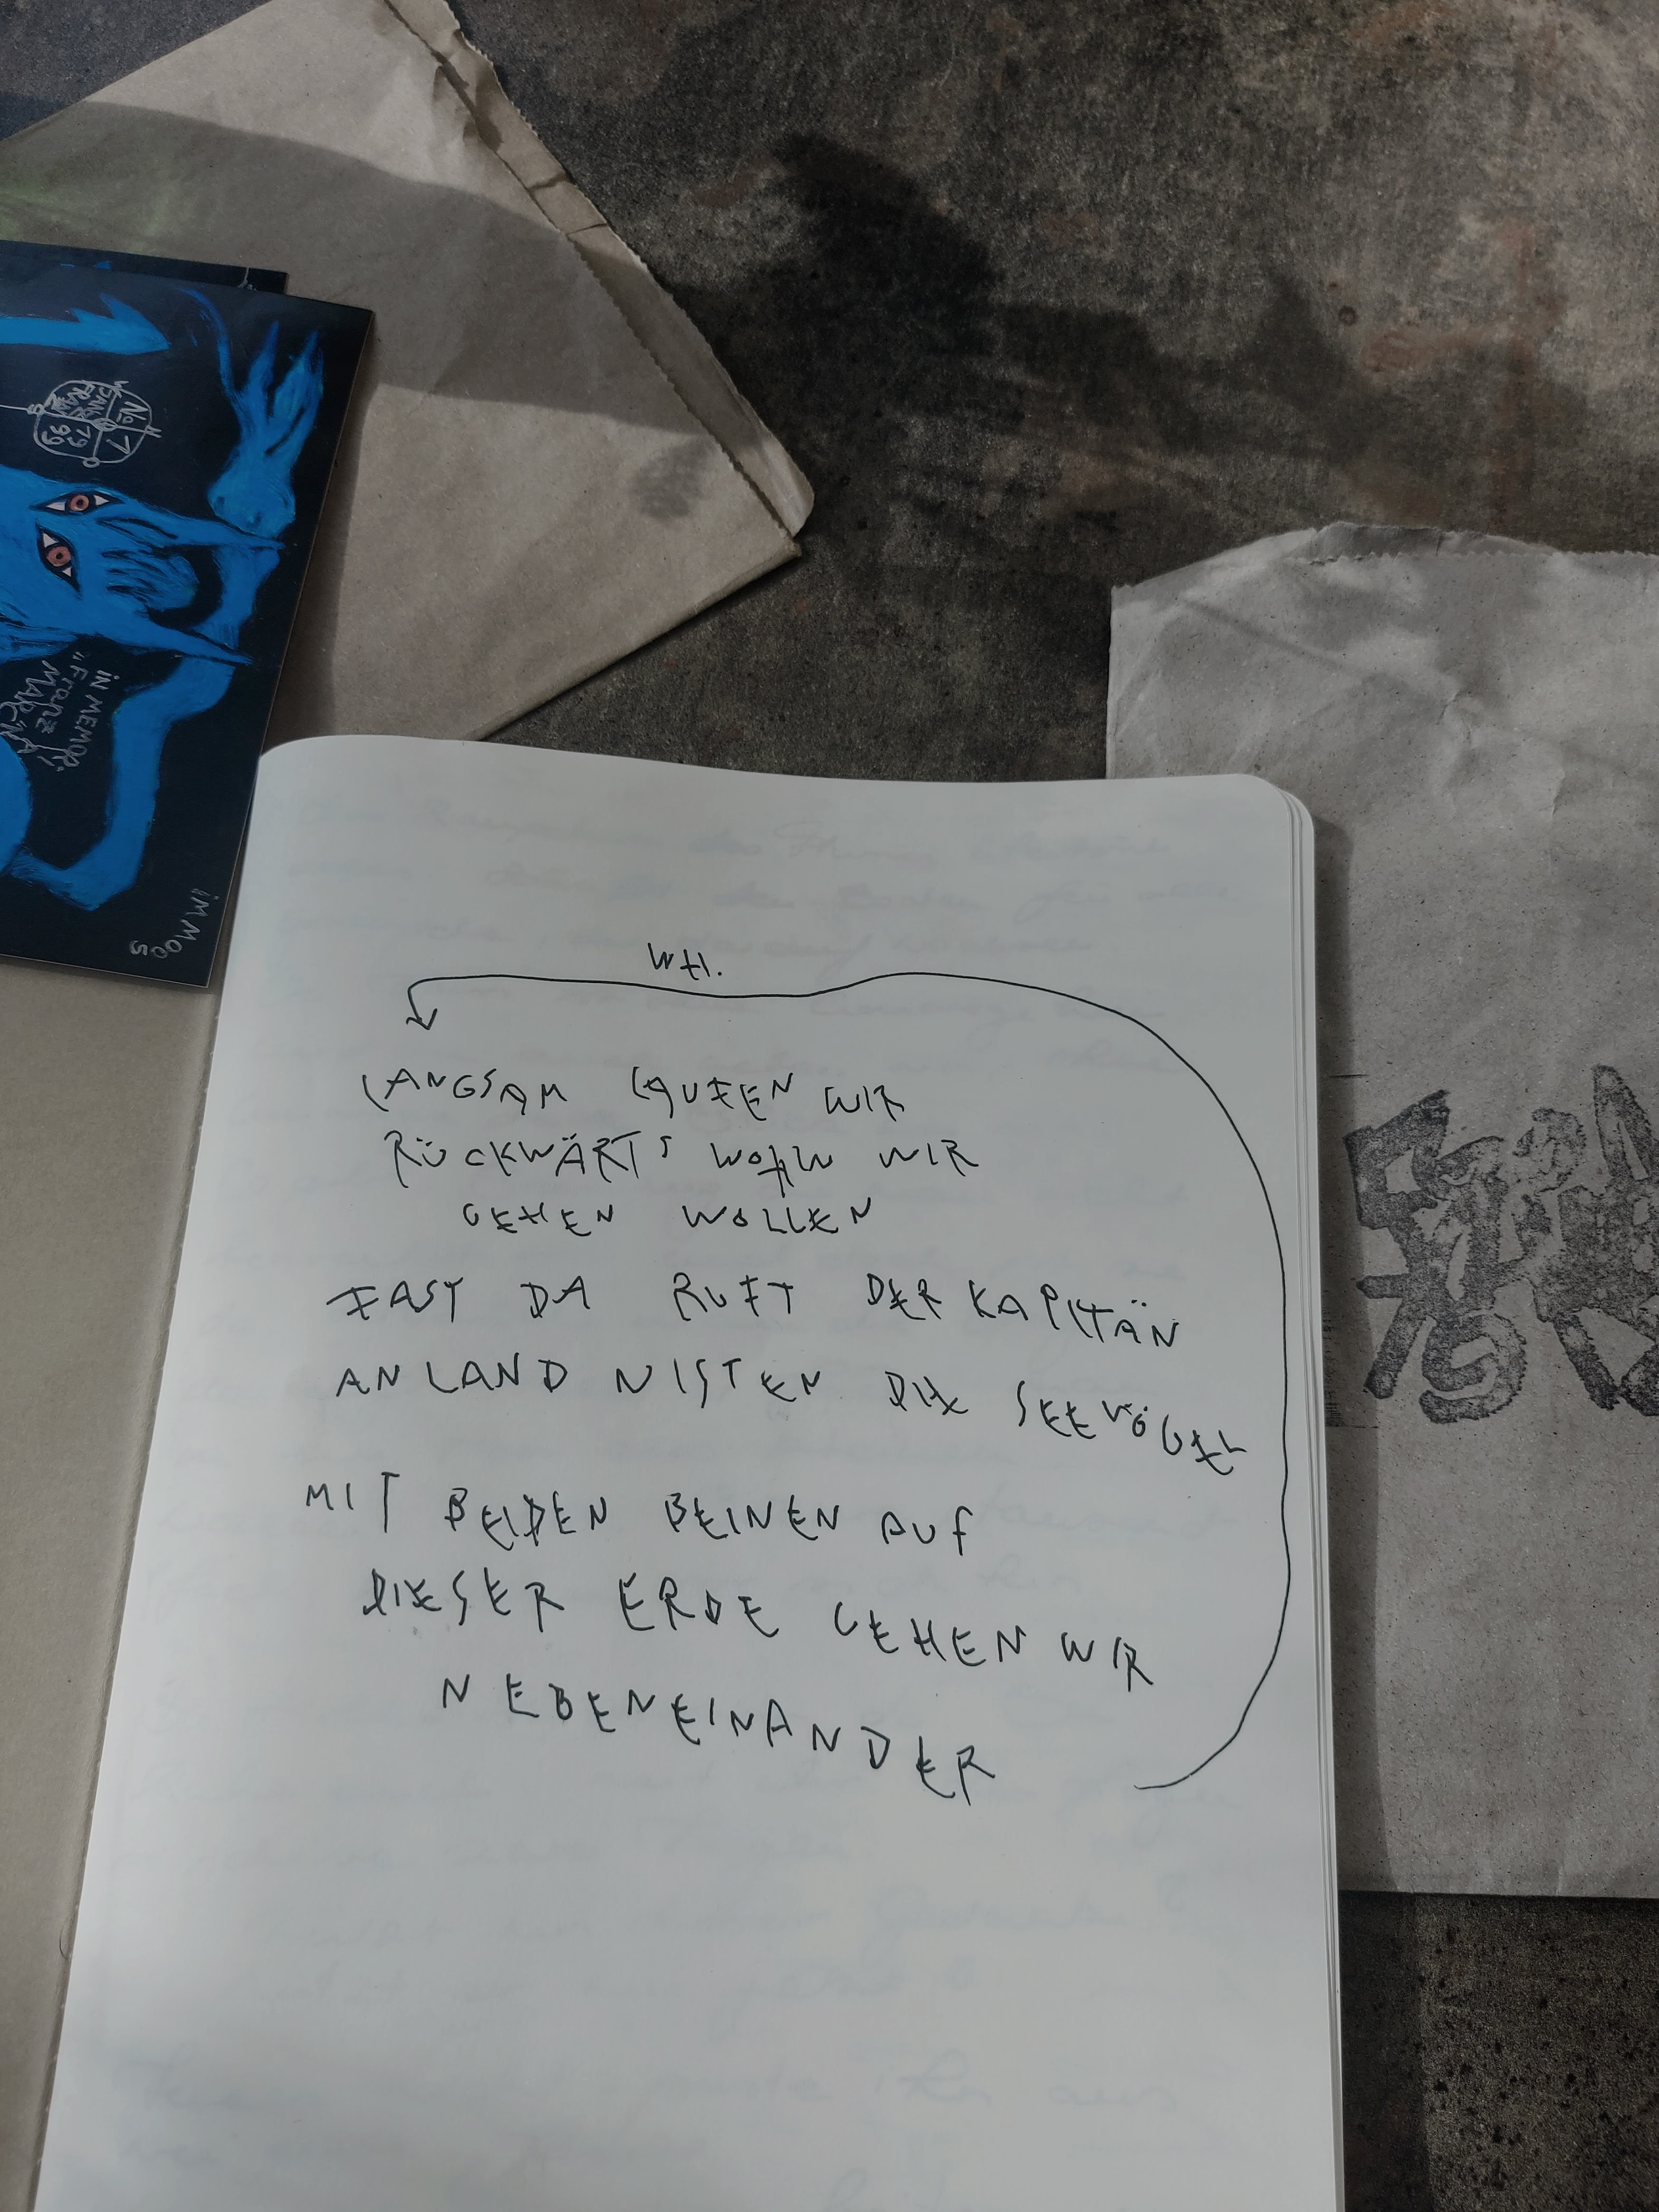 IN MEMOR.
"Franz
IM MOOS
WH.
LANGSAM LAUFEN WIR
RÜCKWÄRTS WOHIN WIR
GEHEN WOLLEN
FAST DA RUFT DER KAPITÄN
AN LAND NISTEN DIE SEEVÖGEL
MIT BEIDEN BEINEN AUF
DIESER ERDE GEHEN WIR
NEBENEINANDER